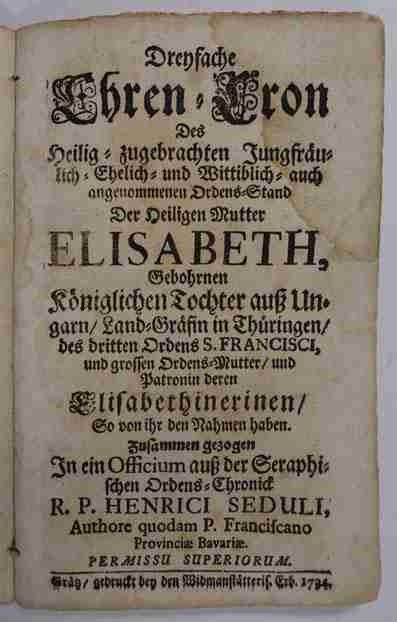 Dreyfache
Ehren-Cron
Des
Heilig-zugebrachten Jungfräu-
lich-Ehelich-und Wittiblich-auch
angenommenen Ordens-Stand
Der Heiligen Mutter
ELISABETH,
Gebohrnen
Königlichen Tochter auß Un-
garn/ Land-Gräfin in Thüringen/
des dritten Ordens S. FRANCISCI,
und grossen Ordens-Mutter/ und
Patronin deren
Elisabethinerinen/
So von ihr den Nahmen haben.
Zusammen gezogen
In ein Officium auß der Seraphi-
schen Ordens-Chronick
R. P. HENRICI SEDULI,
Authore quodam P. Franciscano
Provinciæ Bavariæ.
PERMISSU SUPERIORUM.
Grätz/ gedruckt bey den Widmanstätteris. Erb. 1734.